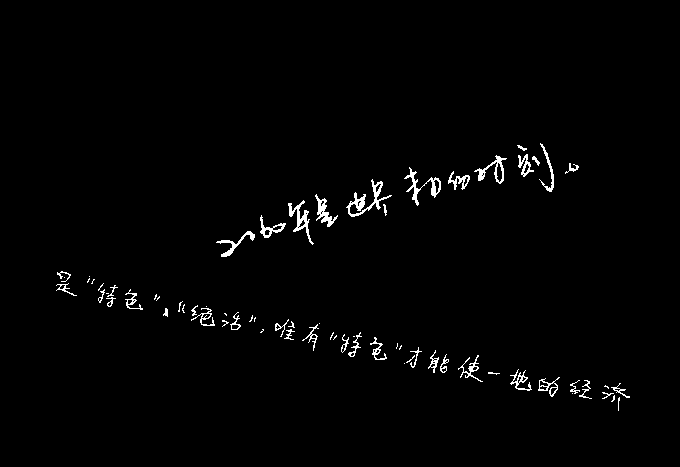 2060年是世界末的时刻。
是“特色”、“绝活”,唯有“特色”才能使一地的经济